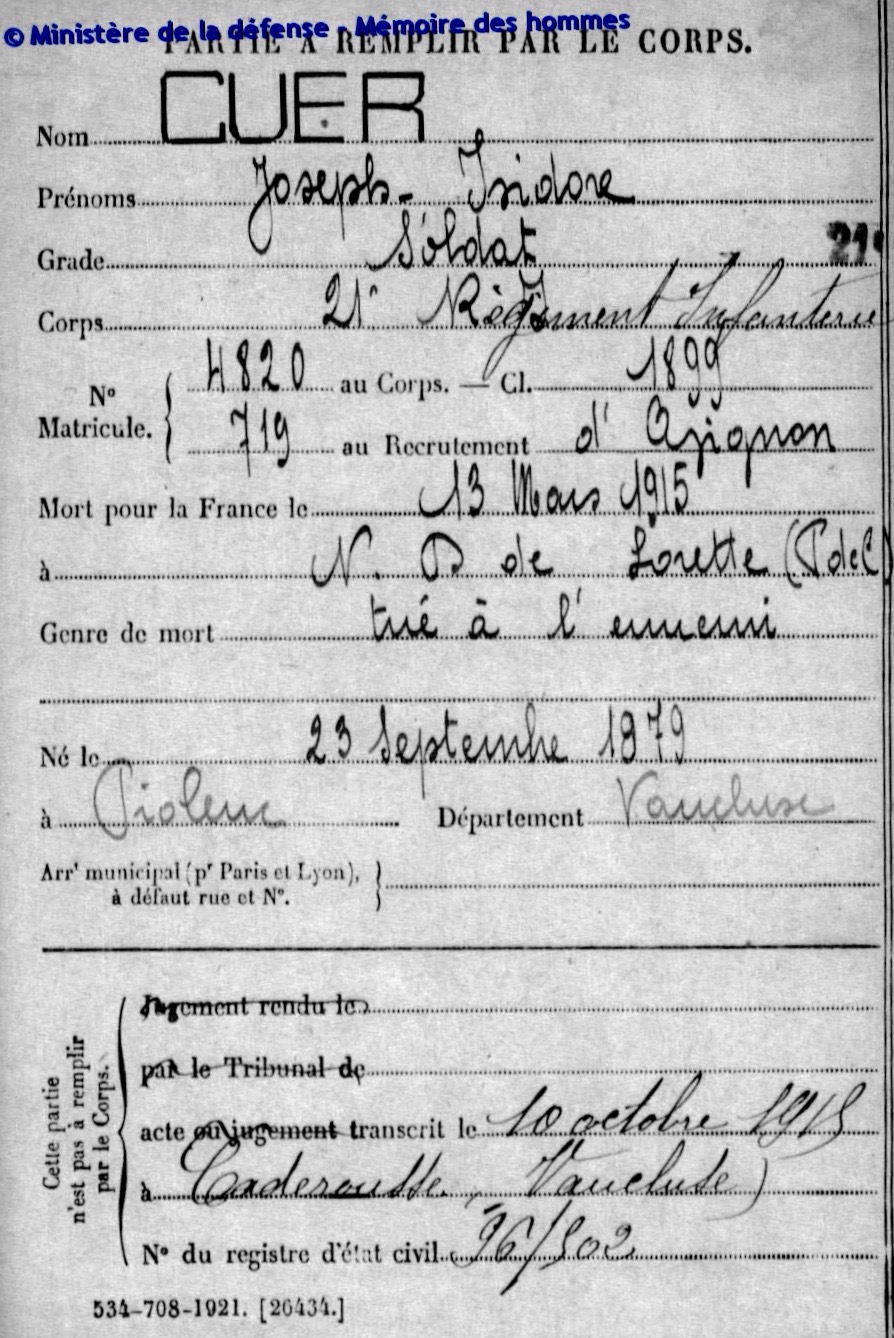 © Ministère de la défense - Mémoire des hommes
PARTIE À REMPLIR PAR LE CORPS.
Nom CUER
Prénoms Joseph- Isidore
Grade Soldat
21e
Corps 21e Régiment Infanterie
No Matricule. { 4820 au Corps. — Cl. 1899
719 au Recrutement d'Avignon
Mort pour la France le 13 Mars 1915
à N. D de Lorette (P de C)
Genre de mort tué à l'ennemi
Né le 23 Septembre 1879
à Piolenc Département Vaucluse
Arrt municipal (pr Paris et Lyon),
à défaut rue et No. }
Cette partie
n'est pas à remplir
par le Corps.
Jugement rendu le
par le Tribunal de
acte ou jugement transcrit le 10 octobre 1915
à Caderousse, Vaucluse)
No du registre d'état civil
534-708-1921. [26434.]